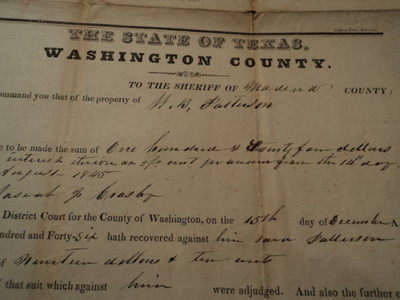 THE STATE OF TEXAS,
WASHINGTON COUNTY.
TO THE SHERIFF OF Medina COUNTY:
ommand you that of the property of W. D. Patterson
e to be made the sum of One hundred & twenty four dollars
interest thereon at 8 pr cent pr annum from the 14th day
August 1845
p Crosby
District Court for the County of Washington, on the 15th day of December A
hundred and Forty Six hath recovered against him said Patterson
Nineteen dollars & ten cents
of that suit which against him were adjudged. And also the further